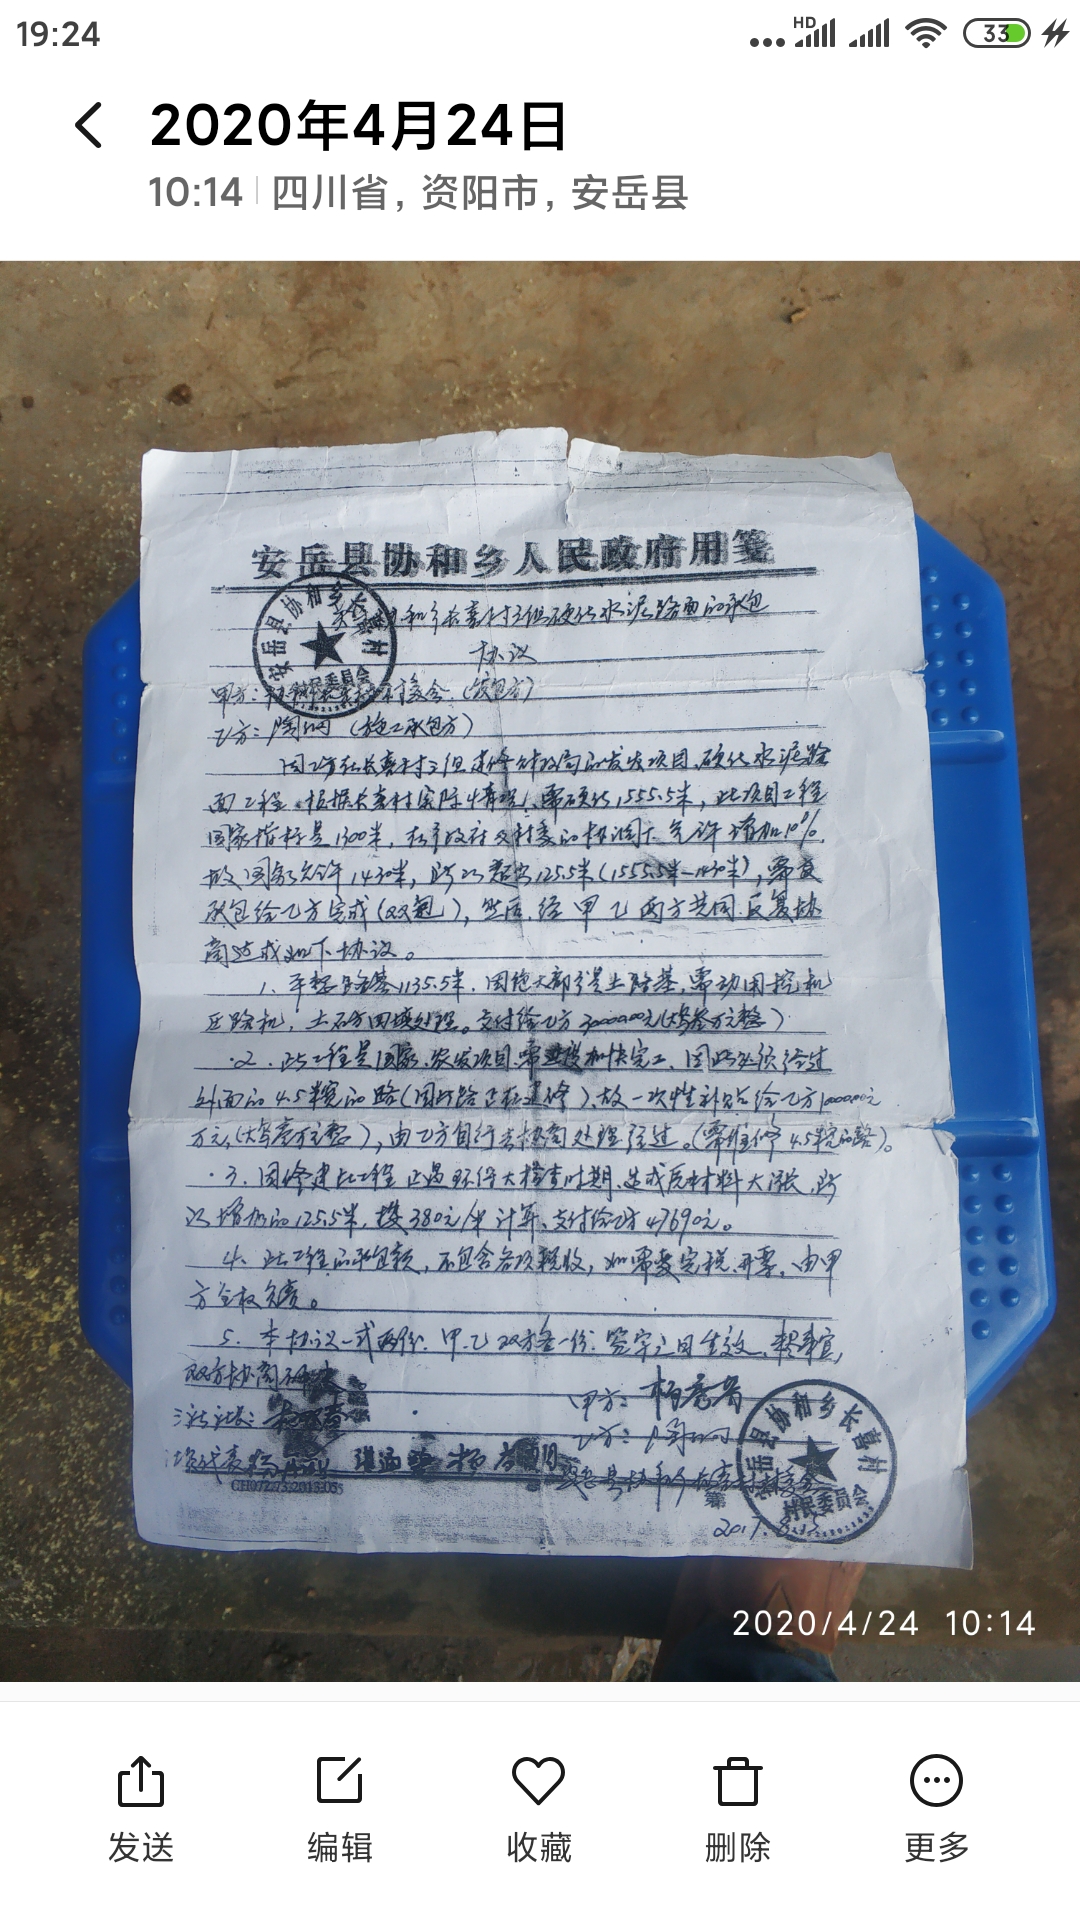 19:24
HD
33
2020年4月24日
10:14 四川省, 资阳市, 安岳县
安岳县协和乡人民政府用笺
协和乡长喜村三组硬化水泥路面的承包
协议
安岳县协和乡长喜村
村民委员会
甲方: 村委会 (发包方)
乙方: (施工承包方)
因乙方在长喜村三组建修财政局的农发项目, 硬化水泥路
面工程, 根据长喜村实际情况, 需硬化1555.5米, 此项目工程
国家指标是1300米, 在乡政府及村委的协调下允许增加10%,
故国家允许1430米, 所以超出125.5米(1555.5米-1430米), 需发
承包给乙方完成, 然后, 经甲乙两方共同反复协
商达成如下协议。
1、平整路基1135.5米, 因绝大部分是土路基, 需动用挖机
压路机, 土石方回填处理。交付给乙方30000.00元(大写叁万元整)
2、此工程是国家农发项目, 需进度加快完工, 因此必须经过
外面的4.5米宽的路(因此路正在建修), 故一次性补贴给乙方10000.00元
万元, (大写壹万元整), 由乙方自行去协商处理经过。(需维修4.5米宽的路)。
3、因修建此工程正遇环保大检查时期, 造成原材料大涨, 所
以增加的125.5米, 按380元/米计算, 支付给乙方47690元。
4、此工程的承包额, 不包含各项税收, 如需要完税开票, 由甲
方全权负责。
5、本协议一式两份, 甲、乙双方各一份, 签字之日生效, 未尽事宜,
双方协商解决
甲方:
乙方:
安岳县协和乡长喜村村委会
安岳县协和乡长喜村
村民委员会
第
2017.8.
2020/4/24 10:14
发送 编辑 收藏 删除 更多